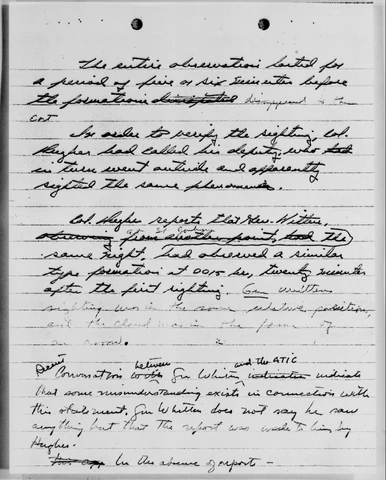 The entire observation lasted for
a period of five or six minutes before
the formations dissipated disappeared
In order to verify the sighting, Col.
had called his deputy, who had
in turn went outside and apparently
sighted the same phenomena.
Col. reports that Gen. Whitten,
observing from another point, had the
same night, had observed a similar
type formation at 0015 hrs, twenty minutes
after the first sighting. Gen Whitten
sighting was in the same relative position,
and the cloud was in the form of
an
Conversation between Gen Whitten and the ATIC indicate
that some misunderstanding exists in connection with
this statement. Gen Whitten does not say he saw
anything but that the report was made to him by
In the absence of reports -